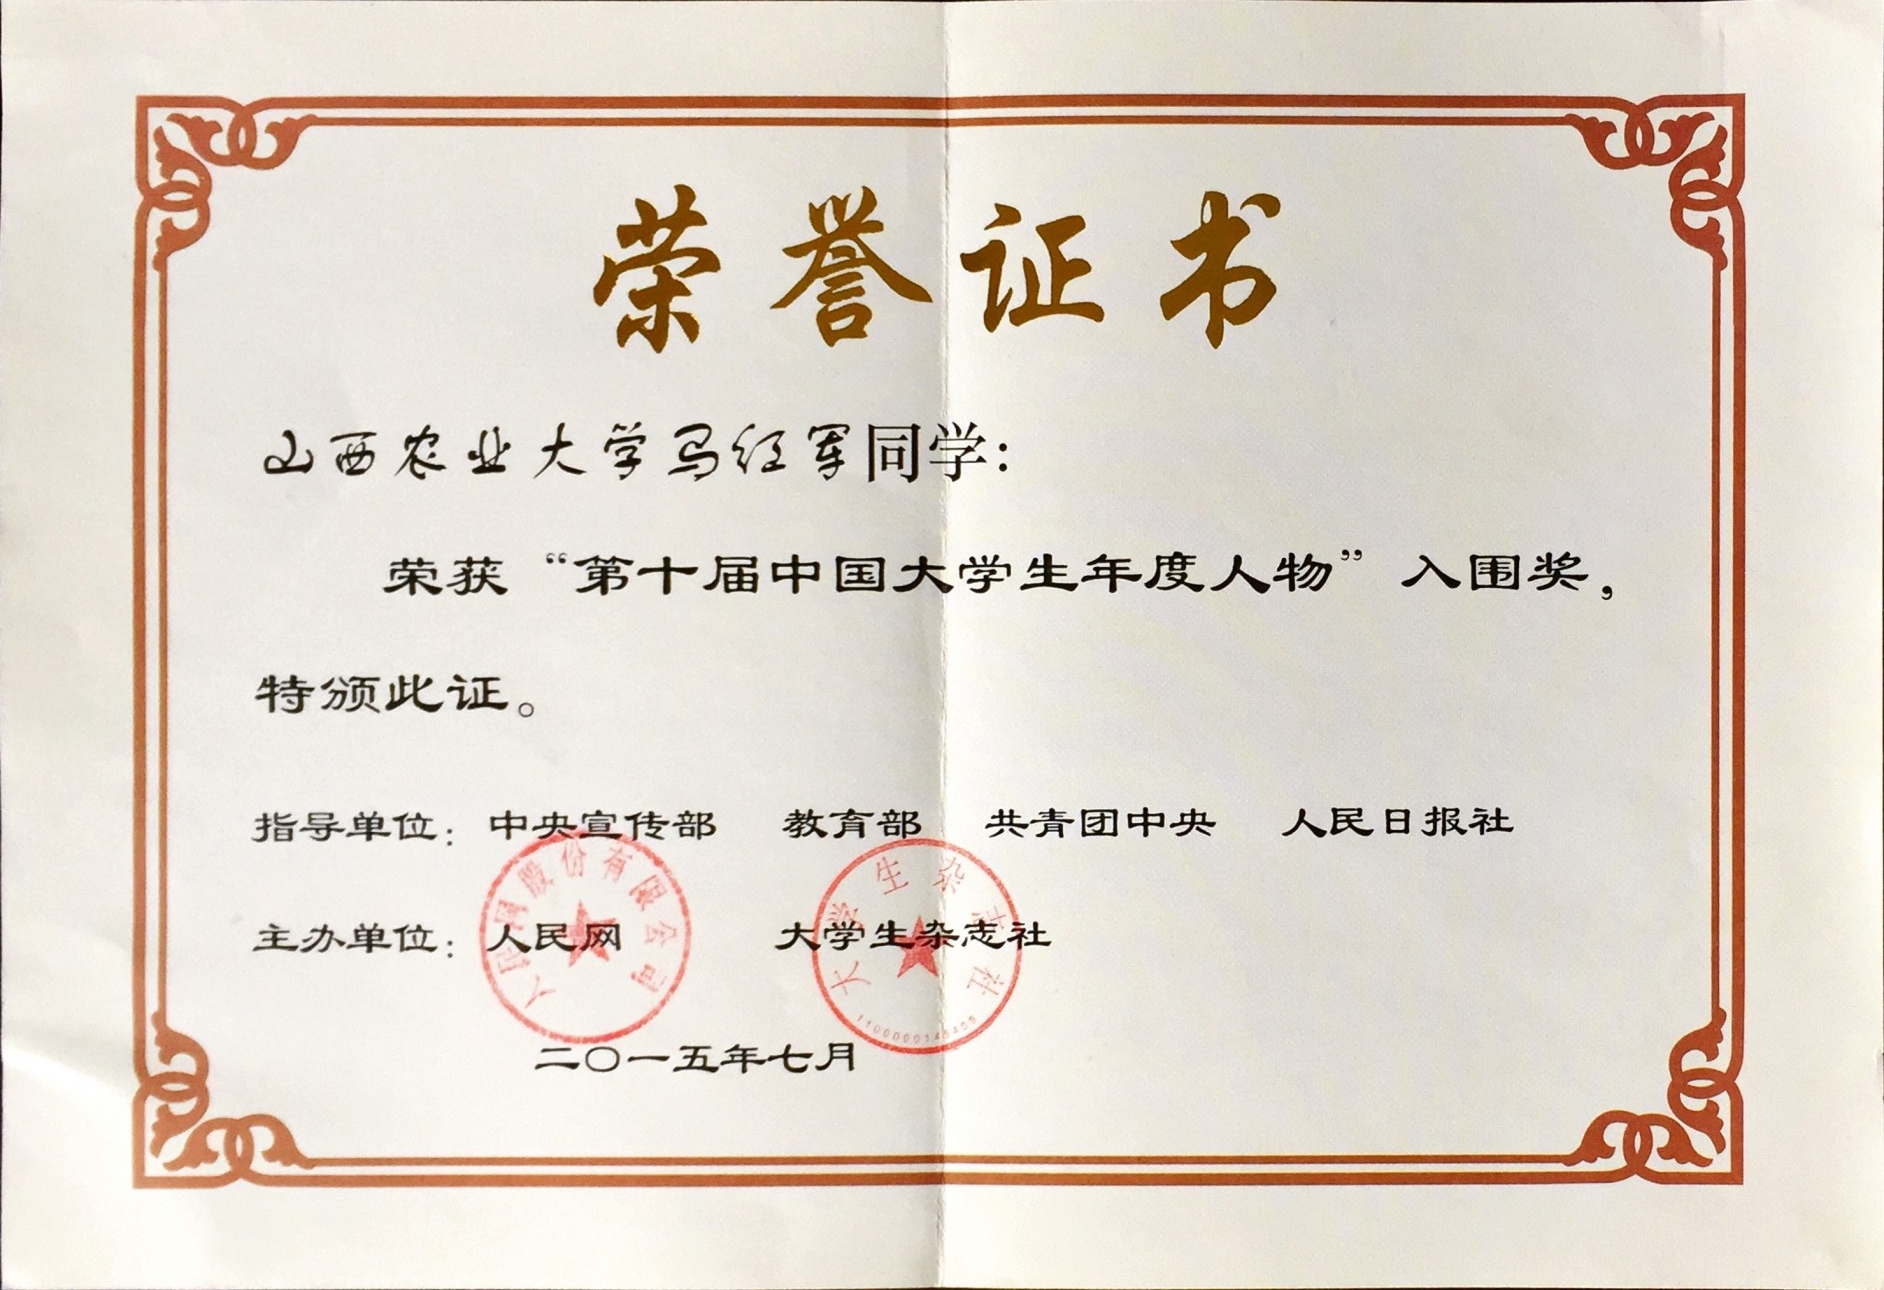 荣誉证书
山西农业大学马红军同学：
荣获“第十届中国大学生年度人物”入围奖，
特颁此证。
指导单位：中央宣传部 教育部 共青团中央 人民日报社
主办单位：人民网 大学生杂志社
人民网股份有限公司
大学生杂志社
二〇一五年七月